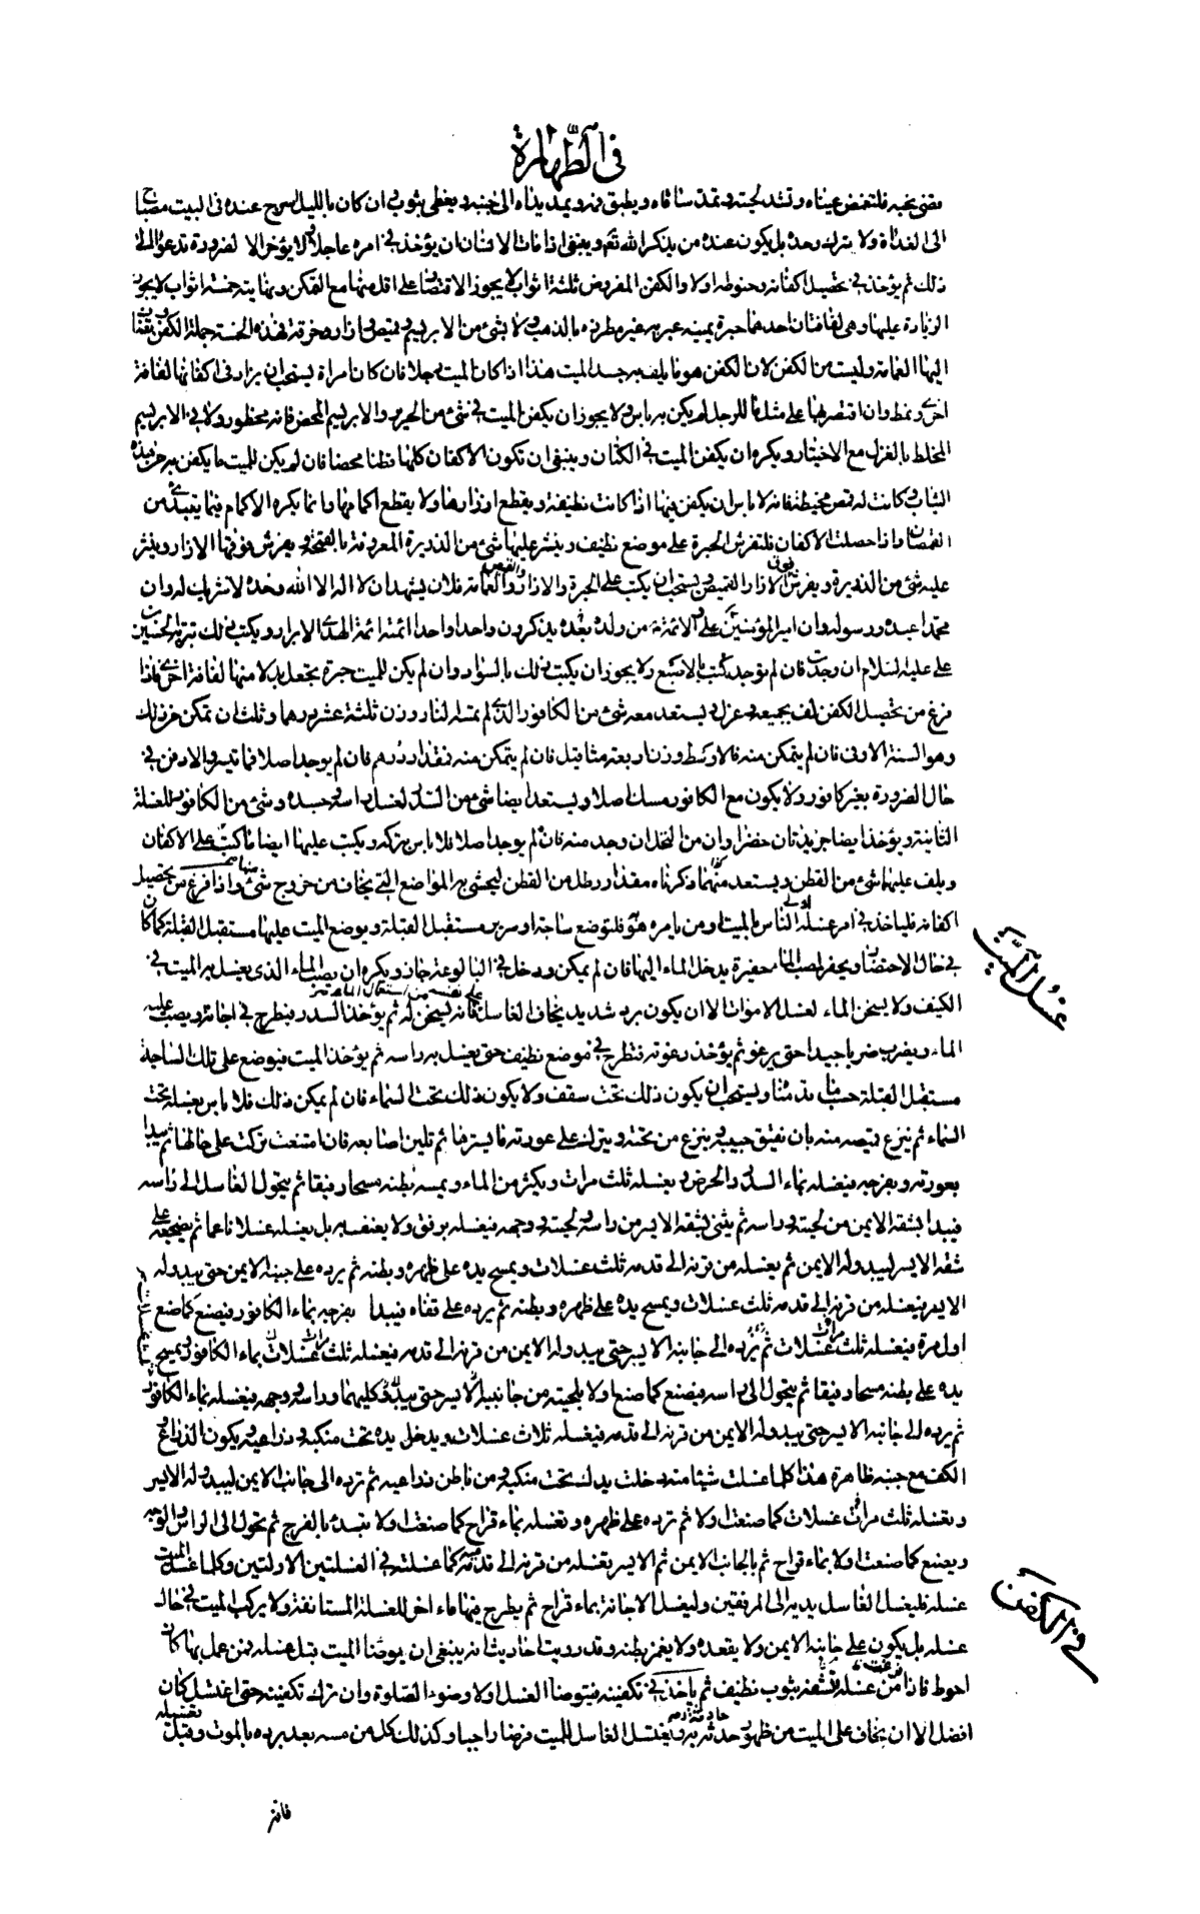 في الطهارة
يقضى نحبه فلتغمض عيناه وتشد لحيته وتمد ساقاه ويطبق فوه ويمد يداه الى جنبيه ويغطى بثوب وان كان بالليل اسرج عنده فى البيت مصباح
الى الغداة ولا يترك وحده بل يكون عنده من يذكر الله تعالى وينبغى اذا مات الانسان ان يؤخذ في امره عاجلا ولا يؤخر الا لضرورة تدعو الى
ذلك ثم يؤخذ في تحصيل اكفانه وحنوطه اولا والكفن المفروض ثلثة اثواب لا يجوز الاقتصار على اقل منها مع التمكن ونهايته خمسة اثواب لا يجوز
الزيادة عليها وهى لفافتان احدهما حبرة يمنية عبرية غير مطرزه بالذهب ولا بشئ من الابريسم وقميص وازار وخرقة فهذه الخمسة جملة الكفن ويضاف
اليها العمامة وليست من الكفن لان الكفن هو ما يلف به جسد الميت هذا اذا كان الميت رجلا فان كان امراة يستحب ان يزاد فى اكفانها لفافة
اخرى ونمط وان اقتصر بها على مثل ما للرجل لم يكن به باس ولا يجوز ان يكفن الميت في شئ من الحرير والابريسم المحض فانه محظور ولا في الابريسم
المختلط بالغزل مع الاختيار ويكره ان يكفن الميت في الكتان وينبغى ان تكون الاكفان كلها قطنا محضا فان لم يكن للميت ما يكفن به من جيد
الثياب وكانت له قمص مخيطة فانه لا باس ان يكفن فيها اذا كانت نظيفة ويقطع ازرارها ولا يقطع اكمامها وانما يكره الاكمام فيما يبتدئ من
القمصان واذا حصلت الاكفان فلتفرش الحبرة على موضع نظيف وينثر عليها شئ من الذريرة المعروفة بالقمحة ويفرش فوقها الازار وينثر
عليه شئ من الذريرة ويفرش فوق الازار القميص ويستحب ان يكتب على الحبرة والازار والقميص والعمامة فلان يشهد ان لا اله الا الله وحده لا شريك له وان
محمدا عبده ورسوله وان امير المؤمنين على والائمة من ولده بعده يذكرون واحدا واحدا ائمته ائمة الهدى الابرار ويكتب ذلك بتربة الحسين بن
على عليه السلام ان وجدت فان لم توجد كتب بالاصبع ولا يجوز ان يكتب ذلك بالسواد وان لم يكن للميت حبرة يجعل بدلا منها لفافة اخرى فاذا
فرغ من تحصيل الكفن لف جميعه وعزل ويستعد معه شئ من الكافور الذى لم تمسه النار وزن ثلثة عشر درهما وثلث ان تمكن من ذلك
وهو السنة الاوفى فان لم يتمكن منه فالاوسط وزن اربعة مثاقيل فان لم يتمكن منه فمقدار درهم فان لم يوجد اصلا فما تيسر والا دفن في
حال الضرورة بغير كافور ولا يكون مع الكافور مسك اصلا ويستعد ايضا شئ من السدر لغسل راسه وجسده وشئ من الكافور للغسلة
الثانية ويؤخذ ايضا جريدتان خضراوان من النخل ان وجد منه فان لم يوجد اصلا فلا باس بتركه ويكتب عليها ايضا ما كتب على الاكفان
ويلف عليها شئ من القطن ويستعد منهما ذكرناه مقدار رطل من القطن ليحشى به المواضع التى يخاف من خروج شئ منها واذا فرغ من تحصيل
اكفانه فلياخذ في امر غسله اولى الناس بالميت او من يامره هو فلتوضع ساجة او سرير مستقبل القبلة ويوضع الميت عليها مستقبل القبلة كما كان
في حال الاحتضار ويحفر لمصب الماء حفيرة يدخل الماء اليها فان لم يمكن ودخل في البالوعة جاز ويكره ان يصب الماء الذى يغسل به الميت في
الكنيف ولا يسخن الماء لغسل الاموات الا ان يكون برد شديد يخاف الغاسل على نفسه من استعمال الماء فانه يسخن له ثم يؤخذ السدر فيطرح في اجانة ويصب عليه
الماء ويضرب ضربا جيدا حتى يرغو ثم يؤخذ رغوته فتطرح في موضع نظيف حتى يغسل به راسه ثم يؤخذ الميت فيوضع على تلك الساجة
مستقبل القبلة حسب ما قدمناه ويستحب ان يكون ذلك تحت سقف ولا يكون ذلك تحت السماء فان لم يمكن ذلك فلا باس بغسله تحت
السماء ثم ينزع قميصه منه بان يفتق جيبه وينزع من تحته ويترك على عورته ما يسترها ثم تلين اصابعه فان امتنعت تركت على حالها ثم يبدا
بعورته وبفرجه فيغسله بماء السدر والحرض ويغسله ثلث مرات ويكثر من الماء ويمسح بطنه مسحا رفيقا ثم يتحول الغاسل الى راسه
فيبدا بشقه الايمن من لحيته وراسه ثم يثنى بشقه الايسر من راسه ولحيته ووجهه فيغسله برفق ولا يعنف به بل يغسله غسلا ناعما ثم يضجعه على
شقه الايسر ليبدو له الايمن ثم يغسله من قرنه الى قدمه ثلث غسلات ويمسح يده على ظهره وبطنه ثم يرده على جنبه الايمن حتى يبدو له
الايسر فيغسله من قرنه الى قدمه ثلث غسلات ويمسح يده على ظهره وبطنه ثم يرده على قفاه فيبدا بفرجه بماء الكافور فيصنع كما صنع
اول مرة فيغسله ثلث غسلات ثم يرده الى جانبه الايسر حتى يبدو له الايمن من قرنه الى قدمه فيغسله ثلث غسلات بماء الكافور ويمسح
يده على بطنه مسحا رفيقا ثم يتحول الى راسه فيصنع كما صنع اولا بلحيته من جانبيه كليهما وراسه ووجهه فيغسله بماء الكافور
ثم يرده الى جانبه الايسر حتى يبدو له الايمن من قرنه الى قدمه فيغسله ثلاث غسلات ويدخل يده تحت منكبيه وذراعيه ويكون الذراع و
الكف مع جنبه ظاهرة هذا كلما غسلت شيئا منه ادخلت يدك تحت منكبيه ومن باطن ذراعيه ثم ترده الى جانبه الايمن ليبدو له الايسر
وتغسله ثلث غسلات كما صنعت اولا ثم ترده على ظهره وتغسله بماء قراح كما صنعت اولا تبدء بالفرج ثم تحول الى الراس والوجه
ويصنع كما صنعت اولا بماء قراح ثم بالجانب الايمن ثم الايسر يغسله من قرنه الى قدمه كما غسلته في الغسلتين الاولتين وكلما غسل الميت
غسله فليغسل الغاسل يديه الى المرفقين وليغسل الاجانة بماء قراح ثم يطرح فيها ماء اخر للغسلة المستانفة ولا يركب الميت في حال
غسله بل يكون على جانبه الايمن ولا يقعده ولا يغمز بطنه وقد رويت احاديث انه ينبغى ان يوضأ الميت قبل غسله فمن عمل بها كان
احوط فاذا فرغت من غسله تنشفه بثوب نظيف ثم ياخذ في تكفينه فيتوضأ الغسل اولا وضوء الصلوة وان ترك تكفينه حتى اغتسل كان
افضل الا ان يخاف على الميت من ظهور حادثة به ويغتسل الغاسل للميت فرضا واجبا وكذلك كل من مسه بعد برده بالموت وقبل تغسيله
غسل الميت
في الكفن